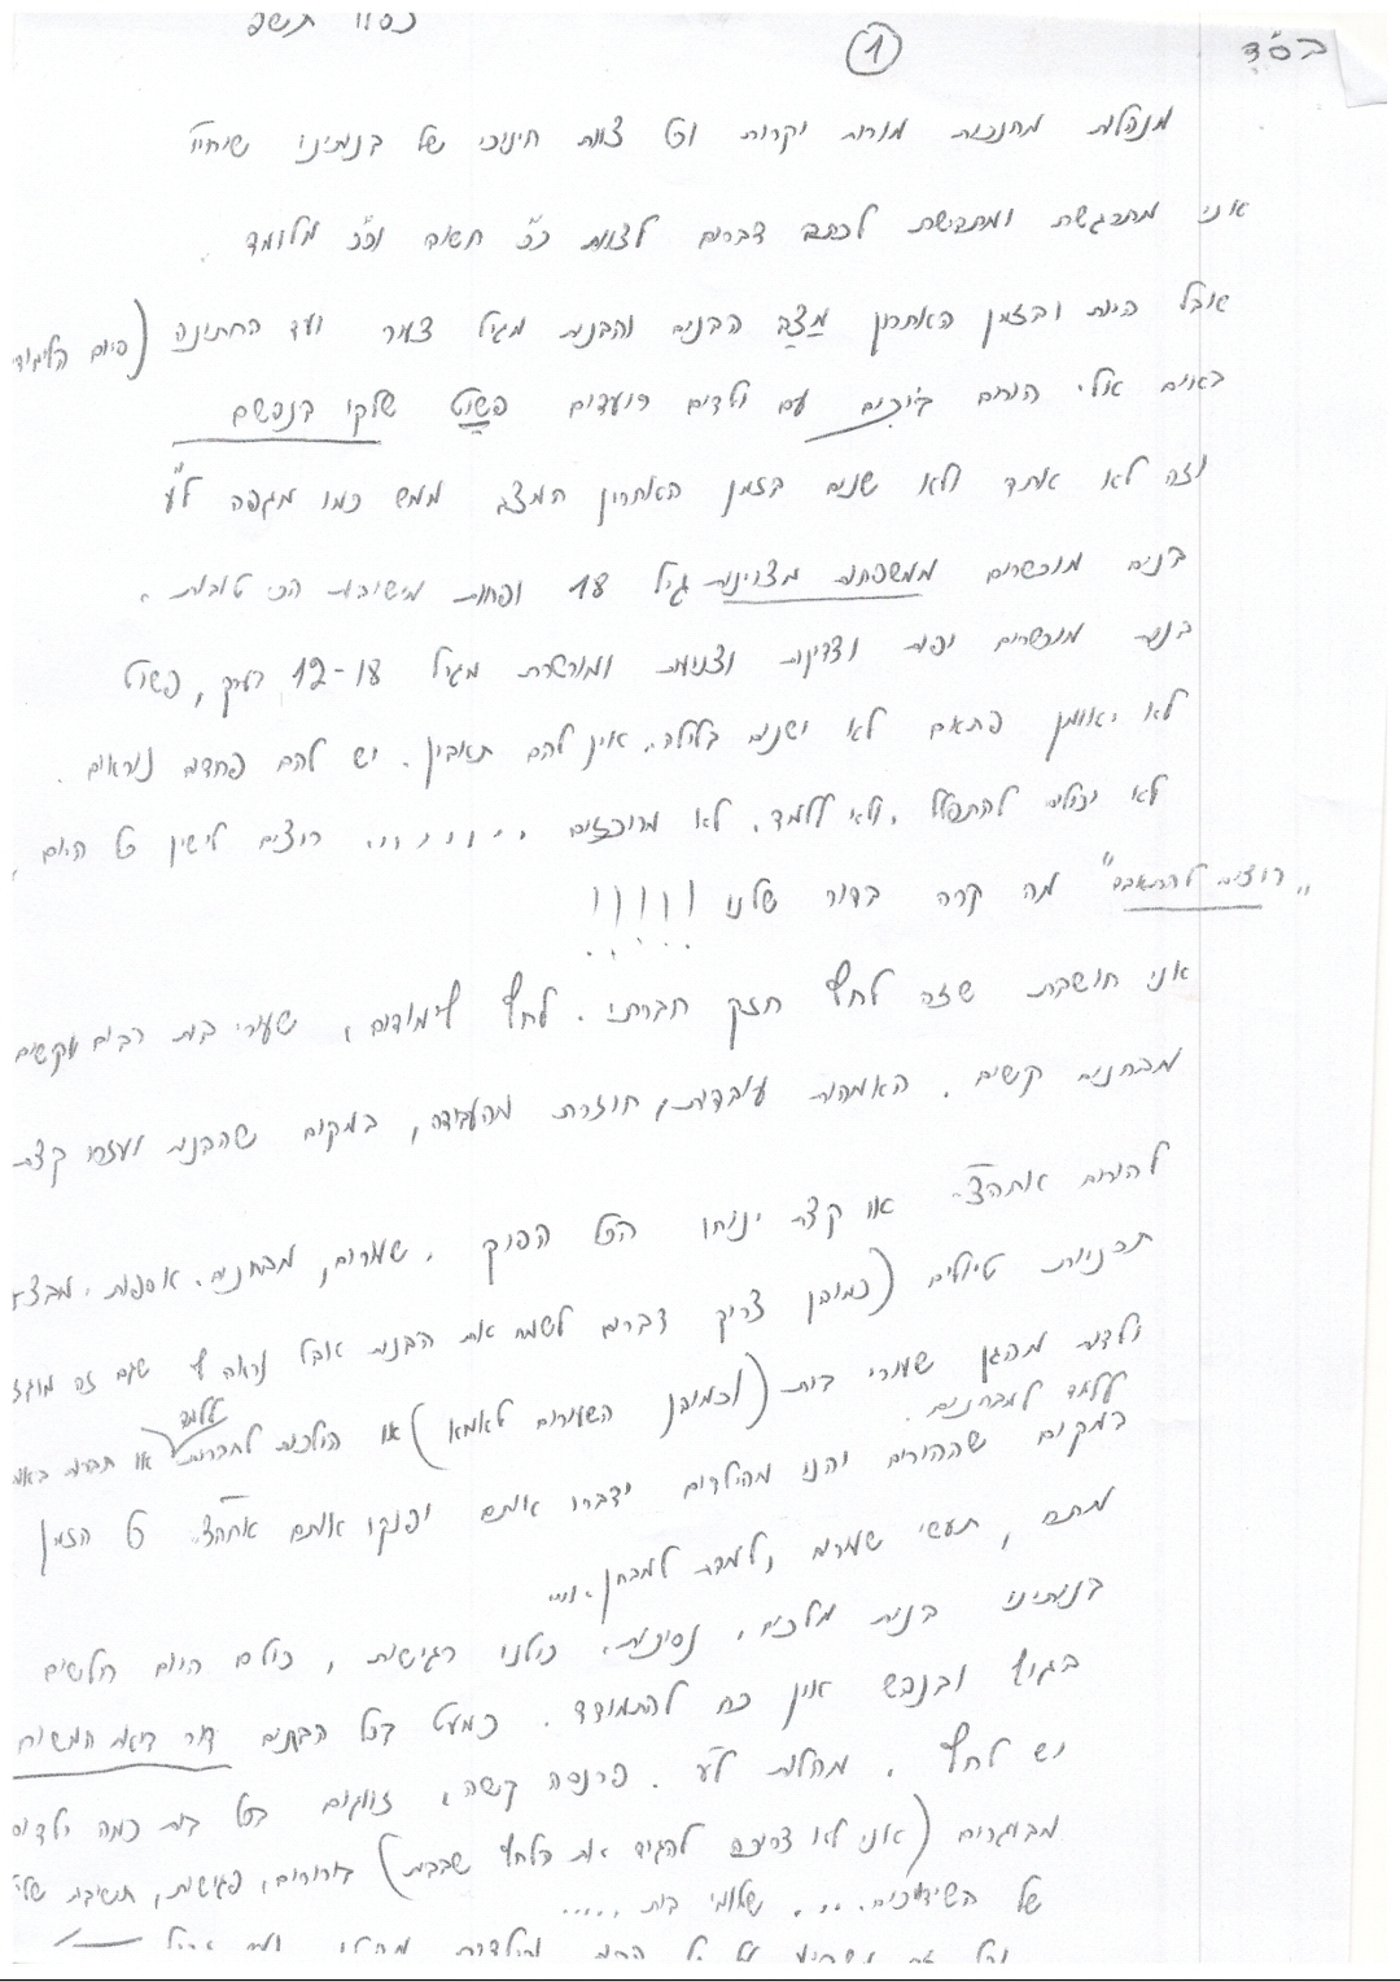 בס"ד
1
תשפ
מנהלות מחנכות מורות יקרות וכל צוות חינוכי של בנותינו שיחי'
אני מתרגשת ומתביישת לכתוב דברים לצוות כ"כ חשוב וכ"כ מלומד.
אבל היות ובזמן האחרון מצב הבנים והבנות מגיל צעיר ועד החתונה (היום
באים אלי הורים בוכים עם ילדים רועדים פשוט שלקו בנפשם
וזה לא אחד ולא שנים בזמן האחרון המצב ממש כמו מגפה ל"ע
בנים מוכשרים ממשפחות מצוינות גיל 18 ופחות מישיבות הכי טובות.
בנות מוכשרים יפות וצדיקות וצנועות ומוכשרות מגיל 12-18 בערך, פשוט
לא יאומן פתאם לא ישנים בלילה, אין להם תאבון. יש להם פחדים נוראים.
לא יכולים להתפלל, ולא ללמד, לא מרוכזים ........ רוצים לישון כל היום,
"רוצים להתאבד" מה קרה בדור שלנו !!!!!
אני חושבת שזה לחץ חזק חברתי. לחץ לימודים, שעורי בית רבים וקשים
מבחנים קשים. האמהות עובדות, חוזרת מהעבודה, במקום שהבנות יעזרו קצת
להורים או קצת ינוחו הכל הפוך. שעורים, מבחנים, אסיפות,
תכניות טיולים (כמובן צריך דברים לשמח את הבנות אבל נראה לי שגם זה מוגזם
ילדות מהגן שעורי בית (וכמובן השעורים לאמא) או הולכות לחברות ללמד או חברות
ללמד למבחנים.
במקום שההורים יהנו מהילדים ידברו איתם ויפנקו אותם כל הזמן
מתח, תעשי שעורים, ללמד למבחן.....
בנותינו בנות מלכים, נסיכות, כולנו רגישות, כולם היום חלשים
בגוף ובנפש אין כח להתמודד. כמעט בכל הבתים דור ביאת המשיח
יש לחץ. מחלות ל"ע. פרנסה קשה, זווגים בכל בית כמה ילדים
מבוגרים (אני לא צריכה להגיד את הלחץ שבבית) בירורים, פגישות,
של השידוכים.... שלומי בית .....